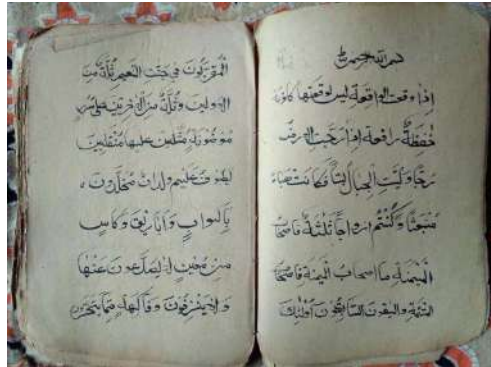 بسم الله الرحمن الرحيم
إذا وقعت الواقعة ليس لوقعتها كاذبة
خفضةٌ رافعة إذا رجت الارض
رجًا وبست الجبال بسًا فكانت هباءً
منبثًا وكنتم ازواجًا ثلثة فاصحاب
الميمنة ما اصحاب اليمنة فاصحاب
المشمة والبقون السابقون أولئك
المقربون في جنت النعيم ثلة من
الاولين وثلة من الاخرين على سرر
موضونة متكئين عليها متقبلين
يطوف عليهم ولدان مخلدون
باكوابٍ وابارِيق وكاسٍ
من معين لا يصدعون عنها
ولا ينزفون وفاكهةٍ مما يتخيرون